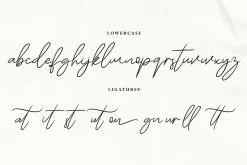 LOWERCASE
abcdefghijklmnopqrstuvwxyz
LIGATURES
at it st ut on gn ur ll tt